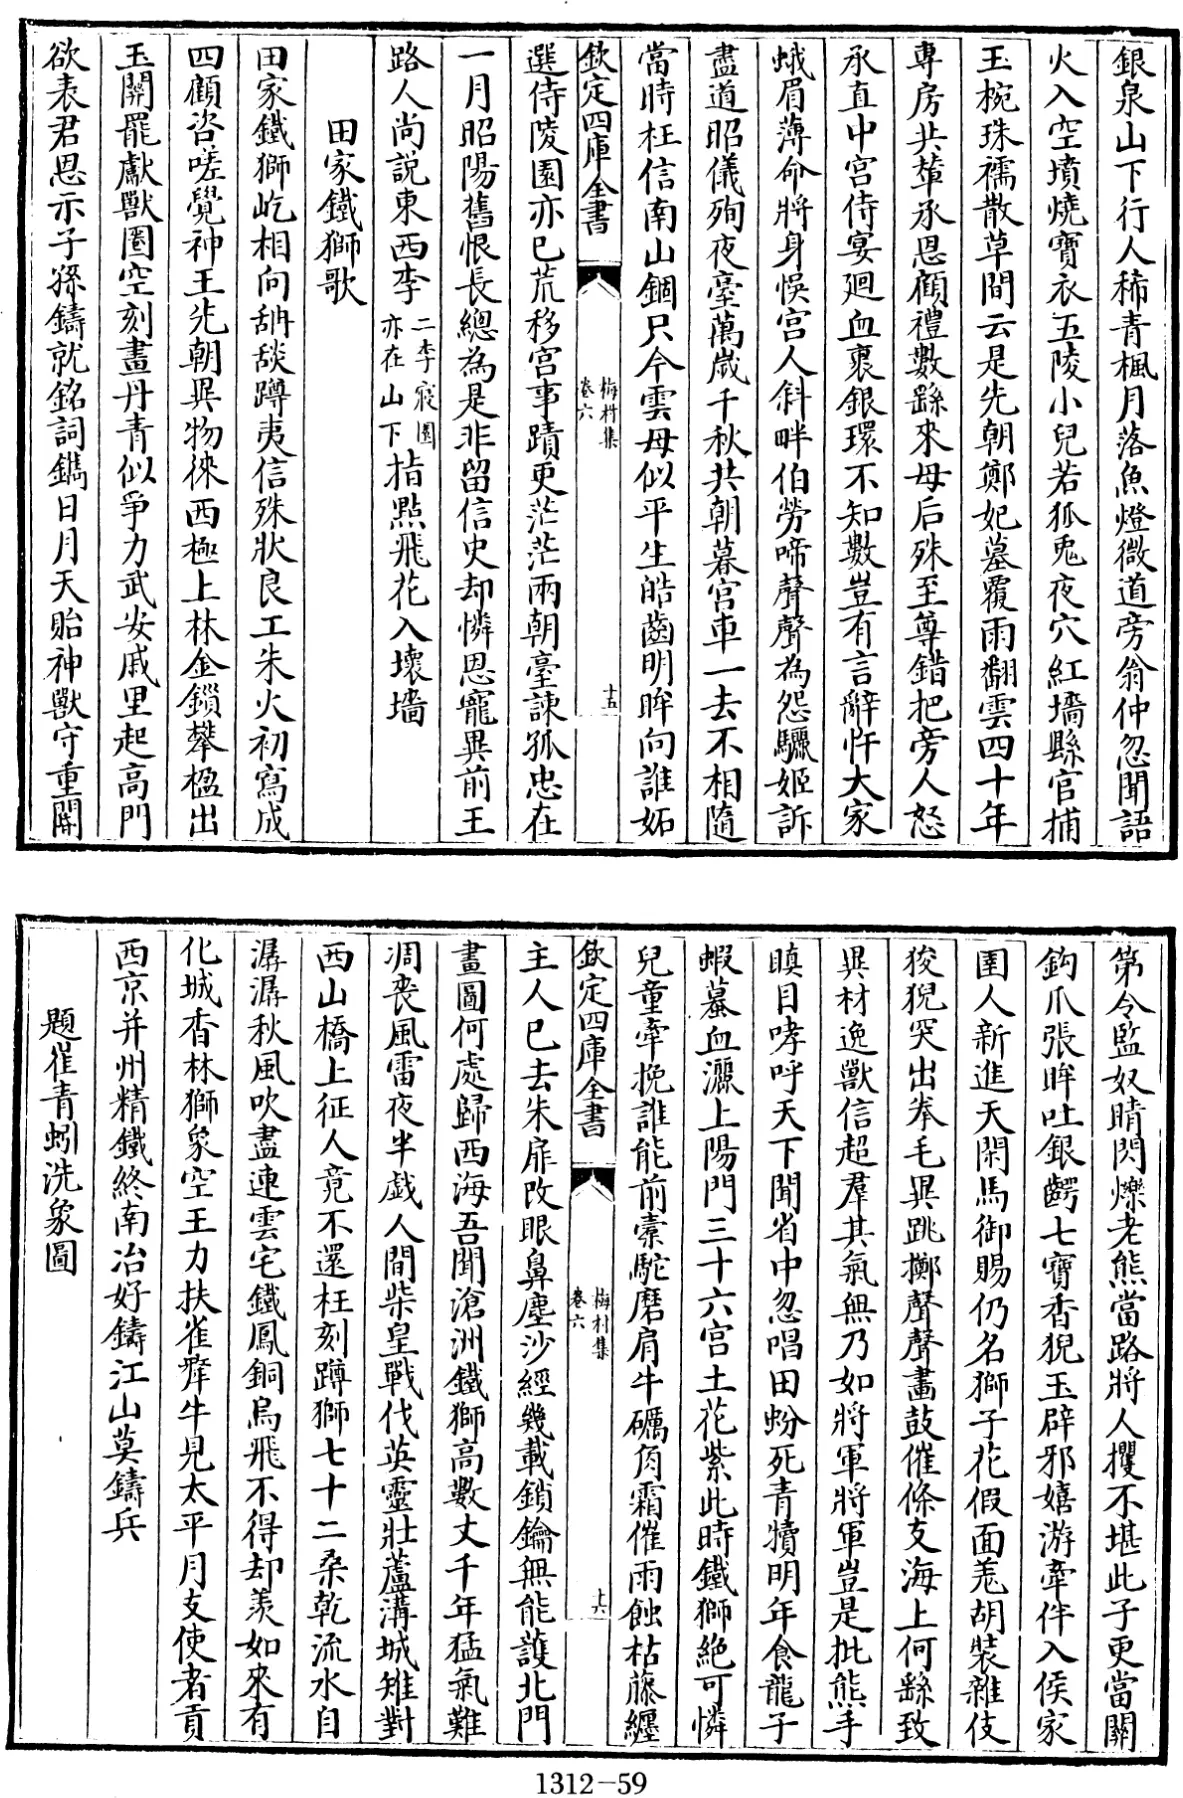 銀泉山下行人稀青楓月落魚燈微道旁翁仲忽聞語
火入空墳燒寶衣五陵小兒若狐兎夜穴紅墻縣官捕
玉椀珠襦散草間云是先朝鄭妃墓覆雨翻雲四十年
專房共輦承恩顧禮數繇來母后殊至尊錯把旁人怒
承直中宮侍宴廻血裹銀環不知數豈有言辭忤大家
蛾眉薄命將身悞宮人斜畔伯勞啼聲聲為怨驪姬訴
盡道昭儀殉夜臺萬歲千秋共朝暮宮車一去不相隨
當時枉信南山錮只今雲母似平生皓齒明眸向誰妬
欽定四庫全書
梅村集
卷六
十五
選侍陵園亦已荒移宮事蹟更茫茫兩朝臺諫孤忠在
一月昭陽舊恨長總為是非留信史却憐恩寵異前王
路人尚說東西李二李寢園亦在山下指點飛花入壞墻
田家鐵獅歌
田家鐵獅屹相向舑舕蹲夷信殊狀良工朱火初寫成
四顧咨嗟覺神王先朝異物徠西極上林金鎖攀楹出
玉關罷獻獸圈空刻畫丹青似爭力武安戚里起高門
欲表君恩示子孫鑄就銘詞鐫日月天貽神獸守重關
第令監奴睛閃爍老熊當路將人攫不堪此子更當關
鈎爪張眸吐銀齶七寶香猊玉辟邪嬉游牽伴入侯家
圉人新進天閑馬御賜仍名獅子花假面羌胡裝雜伎
狻猊突出拳毛異跳擲聲聲畫鼓催條支海上何繇致
異材逸獸信超羣其氣無乃如將軍將軍豈是批熊手
瞋目哮呼天下聞省中忽唱田蚡死青犢明年食龍子
蝦蟇血灑上陽門三十六宮土花紫此時鐵獅絕可憐
兒童牽挽誰能前橐駝磨肩牛礪角霜催雨蝕枯藤纏
欽定四庫全書
梅村集
卷六
十六
主人已去朱扉改眼鼻塵沙經幾載鎖鑰無能護北門
畫圖何處歸西海吾聞滄洲鐵獅高數丈千年猛氣難
凋喪風雷夜半戲人間柴皇戰伐英靈壯蘆溝城雉對
西山橋上征人竟不還枉刻蹲獅七十二桑乾流水自
潺潺秋風吹盡連雲宅鐵鳳銅烏飛不得却羨如來有
化城香林獅象空王力扶雀犛牛見太平月支使者貢
西京并州精鐵終南冶好鑄江山莫鑄兵
題崔青蚓洗象圖
1312-59